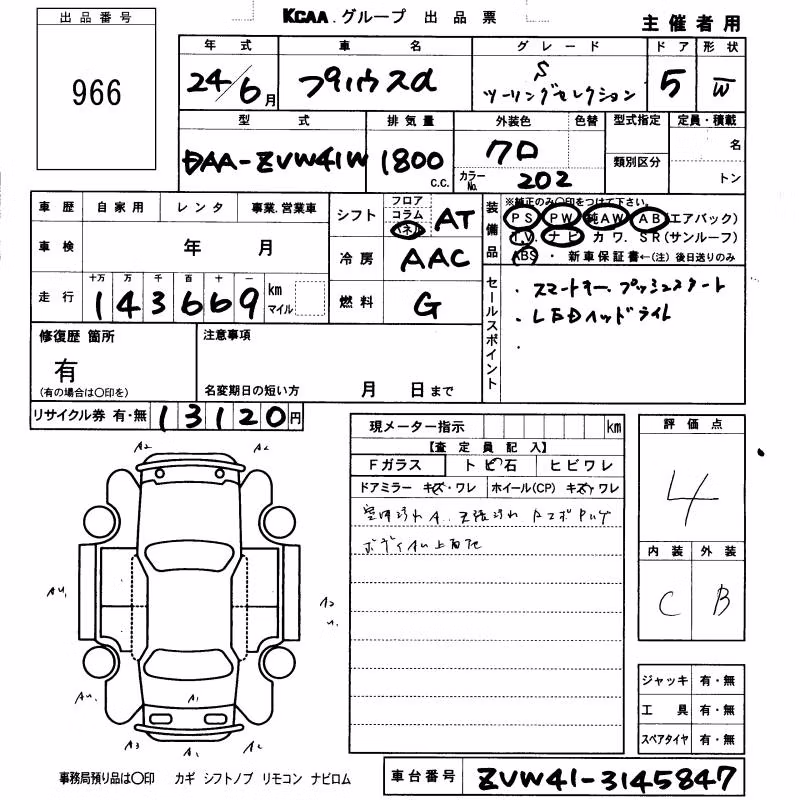 出品番号
966
KCAA.グループ 出品票
主催者用
年式 車名 グレード ドア 形状
24/6月 プリウスα S 5 W
ツーリングセレクション
型式 排気量 外装色 色替 型式指定 定員・積載
DAA-ZVW41W 1800 c.c. クロ 名
カラーNo. 202 類別区分 トン
車歴 自家用 レンタ 事業.営業車
車検 年 月
走行 十万 万 千 百 十 一
143669 km マイル
シフト フロア コラム パネル AT
冷房 AAC
燃料 G
装備品
※純正のみ〇印をつけて下さい。
PS PW 純AW AB(エアバック)
T.V. ナビ カワ. SR(サンルーフ)
ABS ・ 新車保証書←(注)後日送りのみ
セールスポイント
・スマートキー.プッシュスタート
・LEDヘッドライト
・
修復歴 箇所
有
(有の場合は〇印を)
注意事項
名変期日の短い方 月 日まで
リサイクル券 有・無 13120円
現メーター指示 km
【査定員記入】
Fガラス トビ石 ヒビワレ
ドアミラー キズ・ワレ ホイール(CP) キズ・ワレ
評価点
4
内装 外装
C B
A2 A2
AU1
A2
AU1
A1
A2 A1 A2
ジャッキ 有・無
工具 有・無
スペアタイヤ 有・無
事務局預り品は〇印 カギ シフトノブ リモコン ナビロム
車台番号 ZVW41-3145847